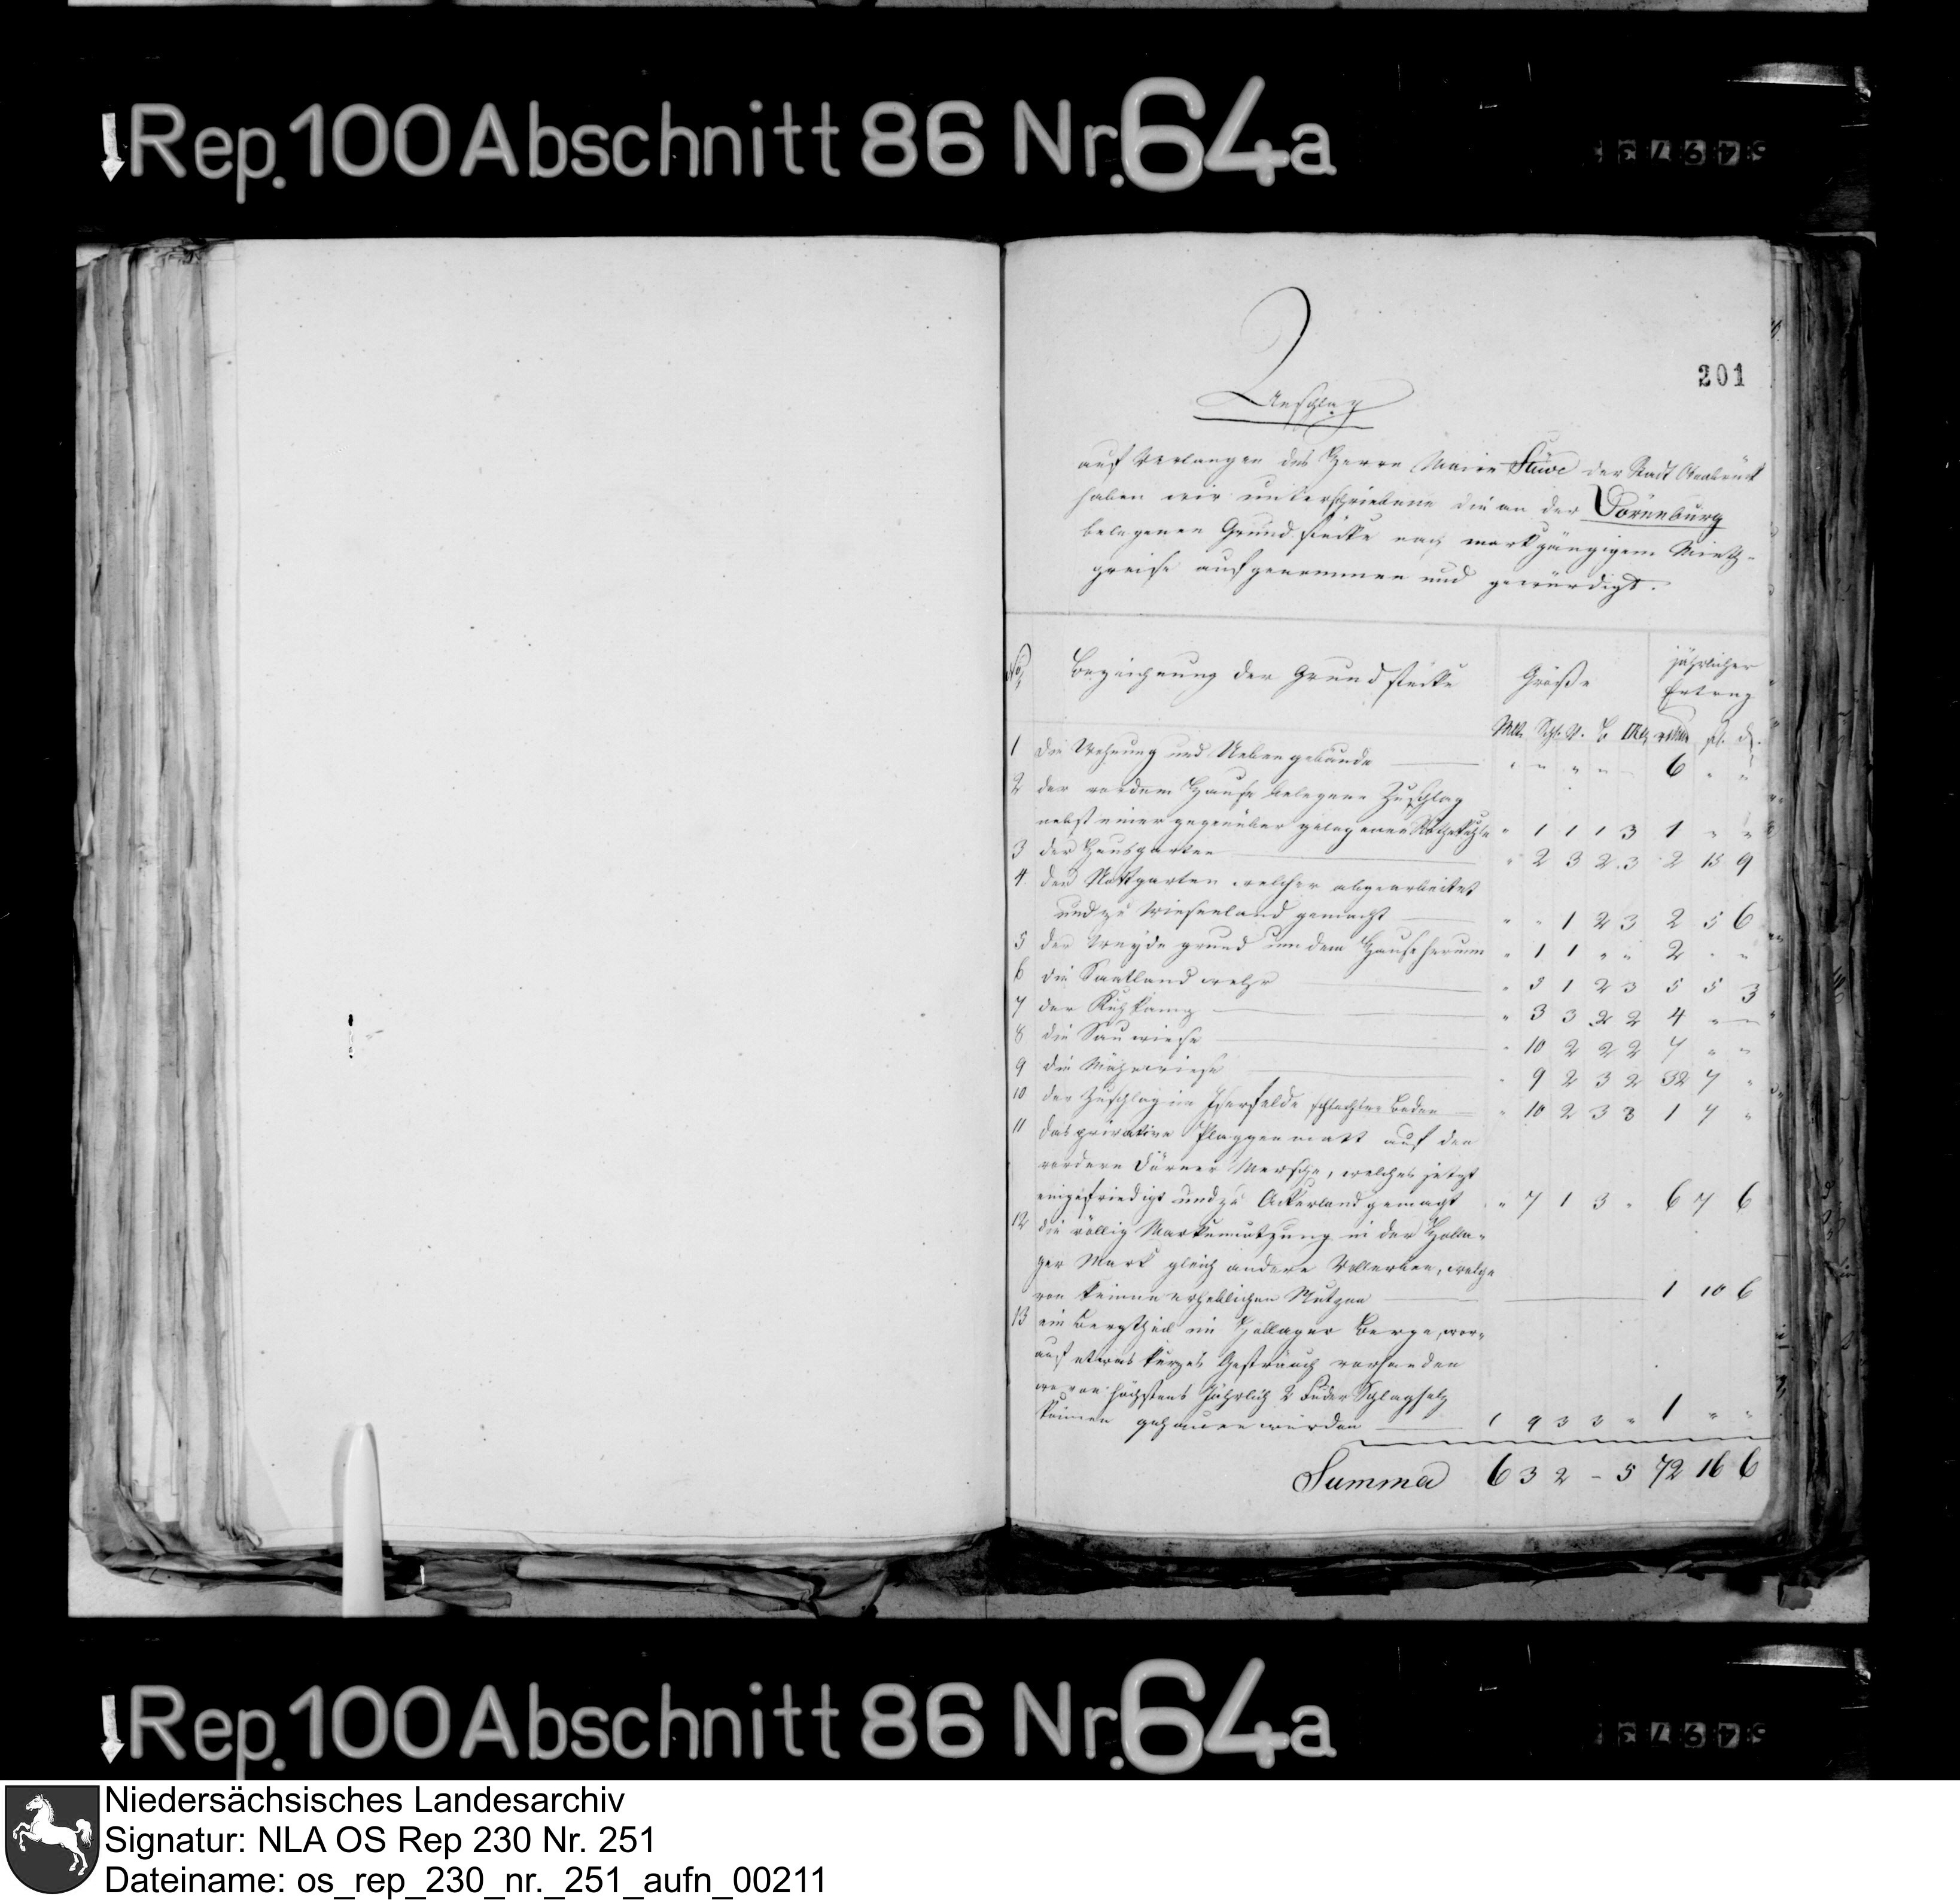 Rep. 100 Abschnitt 86 Nr. 64a
201
Anschlag
auf Verlangen des Herrn Maire Stüve der Stadt Osnabrück
haben wir unterschriebene die an der Dörenburg
belegenen Grundstücke nach markgängigem Mieth-
preise aufgenommen und gewürdigt.
No. Bezeichnung der Grundstücke Größe jährlicher Ertrag
1 die Wohnung und Nebengebäude 6 " "
2 der vor dem Hause belegene Zuschlag
nebst einer gegenüber gelegenen " 1 1 1 3 1 " "
3 der Hausgarten " 2 3 2 3 2 15 9
4 der garten welcher abgearbeitet
und zu Wiesenland gemacht " " 1 2 3 2 5 6
5 der Weyde grund um dem Hause herum " 1 1 " " 2 " "
6 die Saatland " 5 1 2 3 5 5 3
7 der Kuhkamp " 3 3 2 2 4 " "
8 die Sauwiese " 10 2 2 2 7 " "
9 die Mähewiese " 9 2 3 2 32 7 "
10 der Zuschlag im felde schlechter Boden " 10 2 3 3 1 7 "
11 das privative Plaggenmatt auf den
vordern Dörner Mersche, welches jetzt
eingefriedigt und zu Ackerland gemacht " 7 1 3 " 6 7 6
12 die völlig Markennutzung in der Holla-
ger Mark gleich andere Vollerben, welche
von keinen erheblichen Nutzen 1 10 6
13 ein Bergtheil im Hollager Berge, wor-
auf etwas kurzes Gesträuch vorhanden
wovon höchstens jährlich 2 Fuder Schlagholz
können gehauen werden 1 9 3 3 " 1 " "
Summa 6 3 2 - 5 72 16 6
Rep. 100 Abschnitt 86 Nr. 64a
Niedersächsisches Landesarchiv
Signatur: NLA OS Rep 230 Nr. 251
Dateiname: os_rep_230_nr._251_aufn_00211